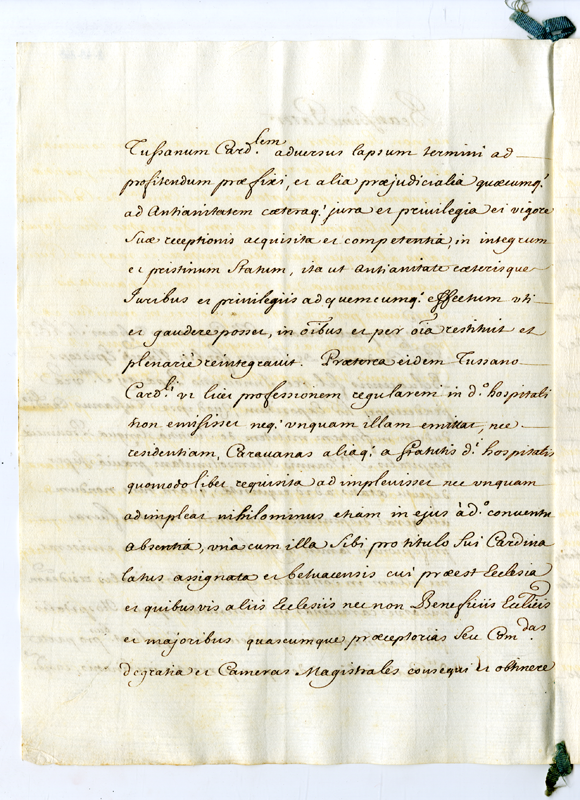 Tussanum Card.lem adversus lapsum termini ad
profitendum præfixi, et alia præjudicialia quæcumq.
ad Antianitatem cæteraq. jura et privilegia ei vigore
suæ receptionis acquisita et competentia, in integrum
et pristinum statum, ita ut antianitate cæterisque
Juribus et privilegiis ad quemcumq. effectum uti
et gaudere posset, in oibus et per oia restituit et
plenarie reintegravit. Præterea eidem Tussano
Card.li ut licet professionem regularem in d.o hospitali
non emisisset neq. unquam illam emittat, nec
residentiam, Caravanas aliaq. a statutis d.i hospitalis
quomodolibet requisita adimplevisset nec unquam
adimpleat nihilominus etiam in ejus ad.o conventu
absentia, una cum illa sibi pro titulo sui Cardina
latus assignata et beluacensis cui præest Ecclesia
et quibusvis aliis Ecclesiis nec non Beneficiis Eccl'icis
et majoribus quascumque præceptorias seu Com.das
de gratia et Cameras Magistrales consequi et obtinere